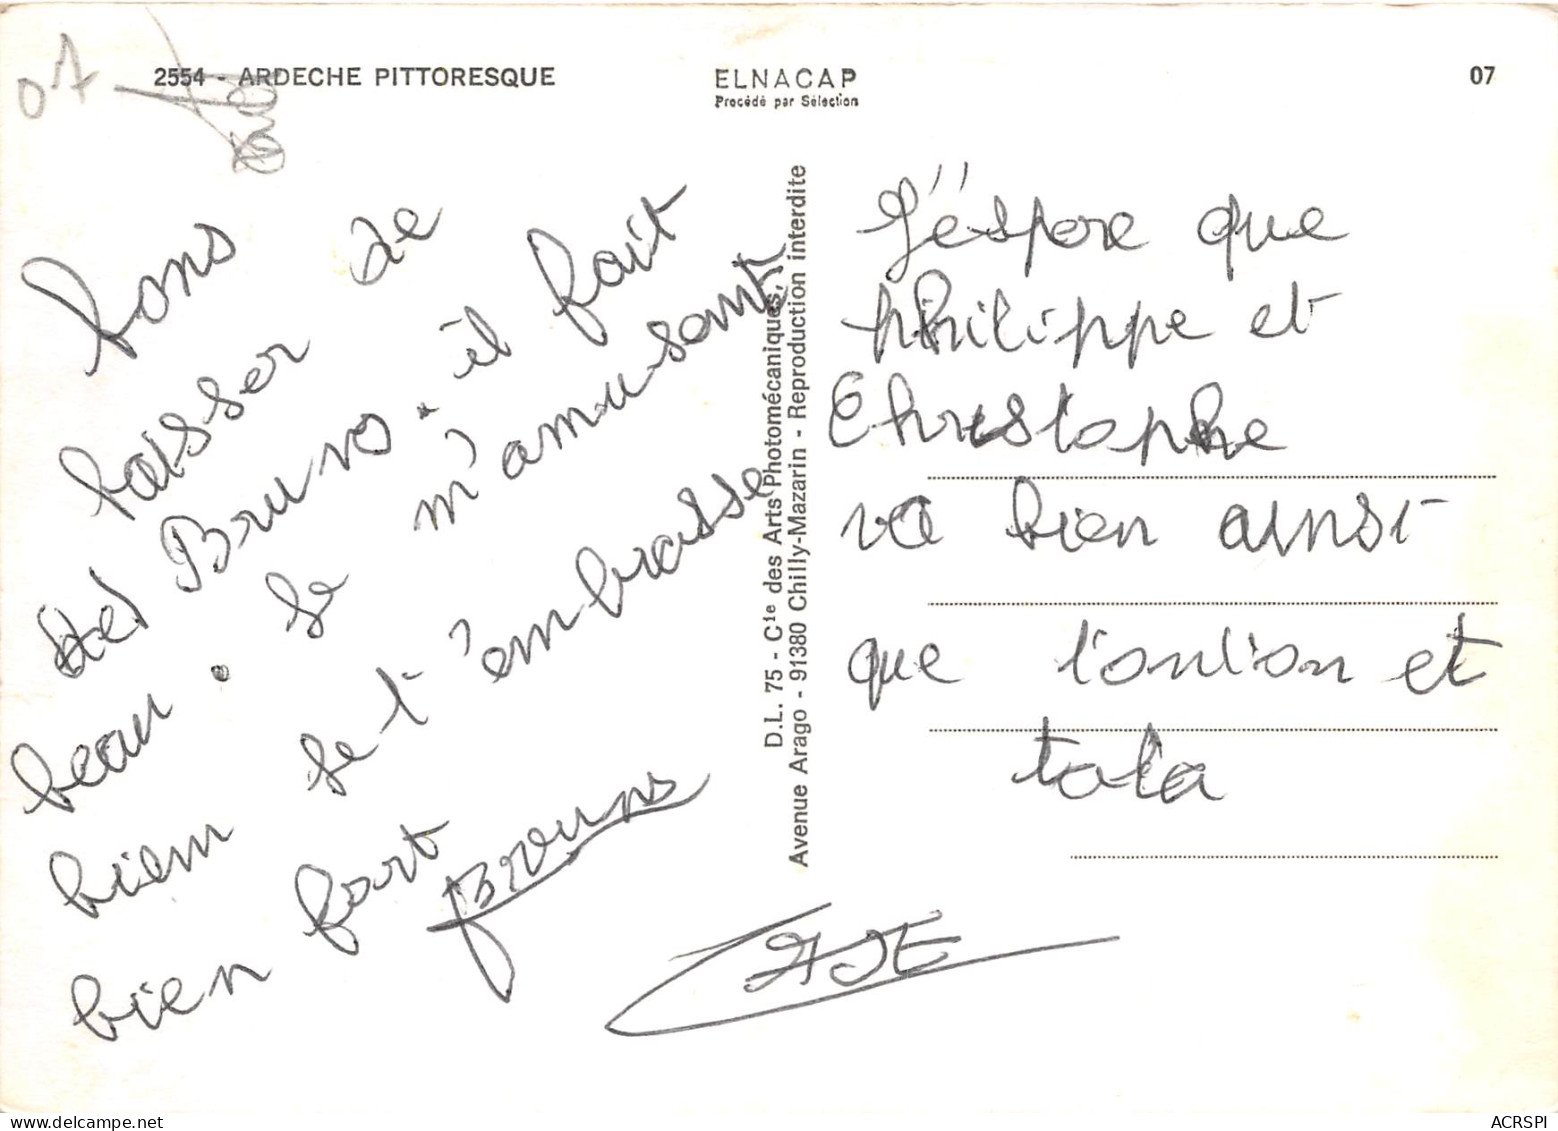 07
2554 - ARDECHE PITTORESQUE
ELNACAP
Procédé par Sélection
07
bons
baisser de
de Bruno. il fait
beau. Je m'amusant
biem je t'embrasse
bien fort Bruno
J'éspere que
Philippe et
Christophe
va bien ainsi
que tonton et
tata
D.L. 75 - Cie des Arts Photomécaniques,
Avenue Arago - 91380 Chilly-Mazarin - Reproduction interdite
ACRSPI